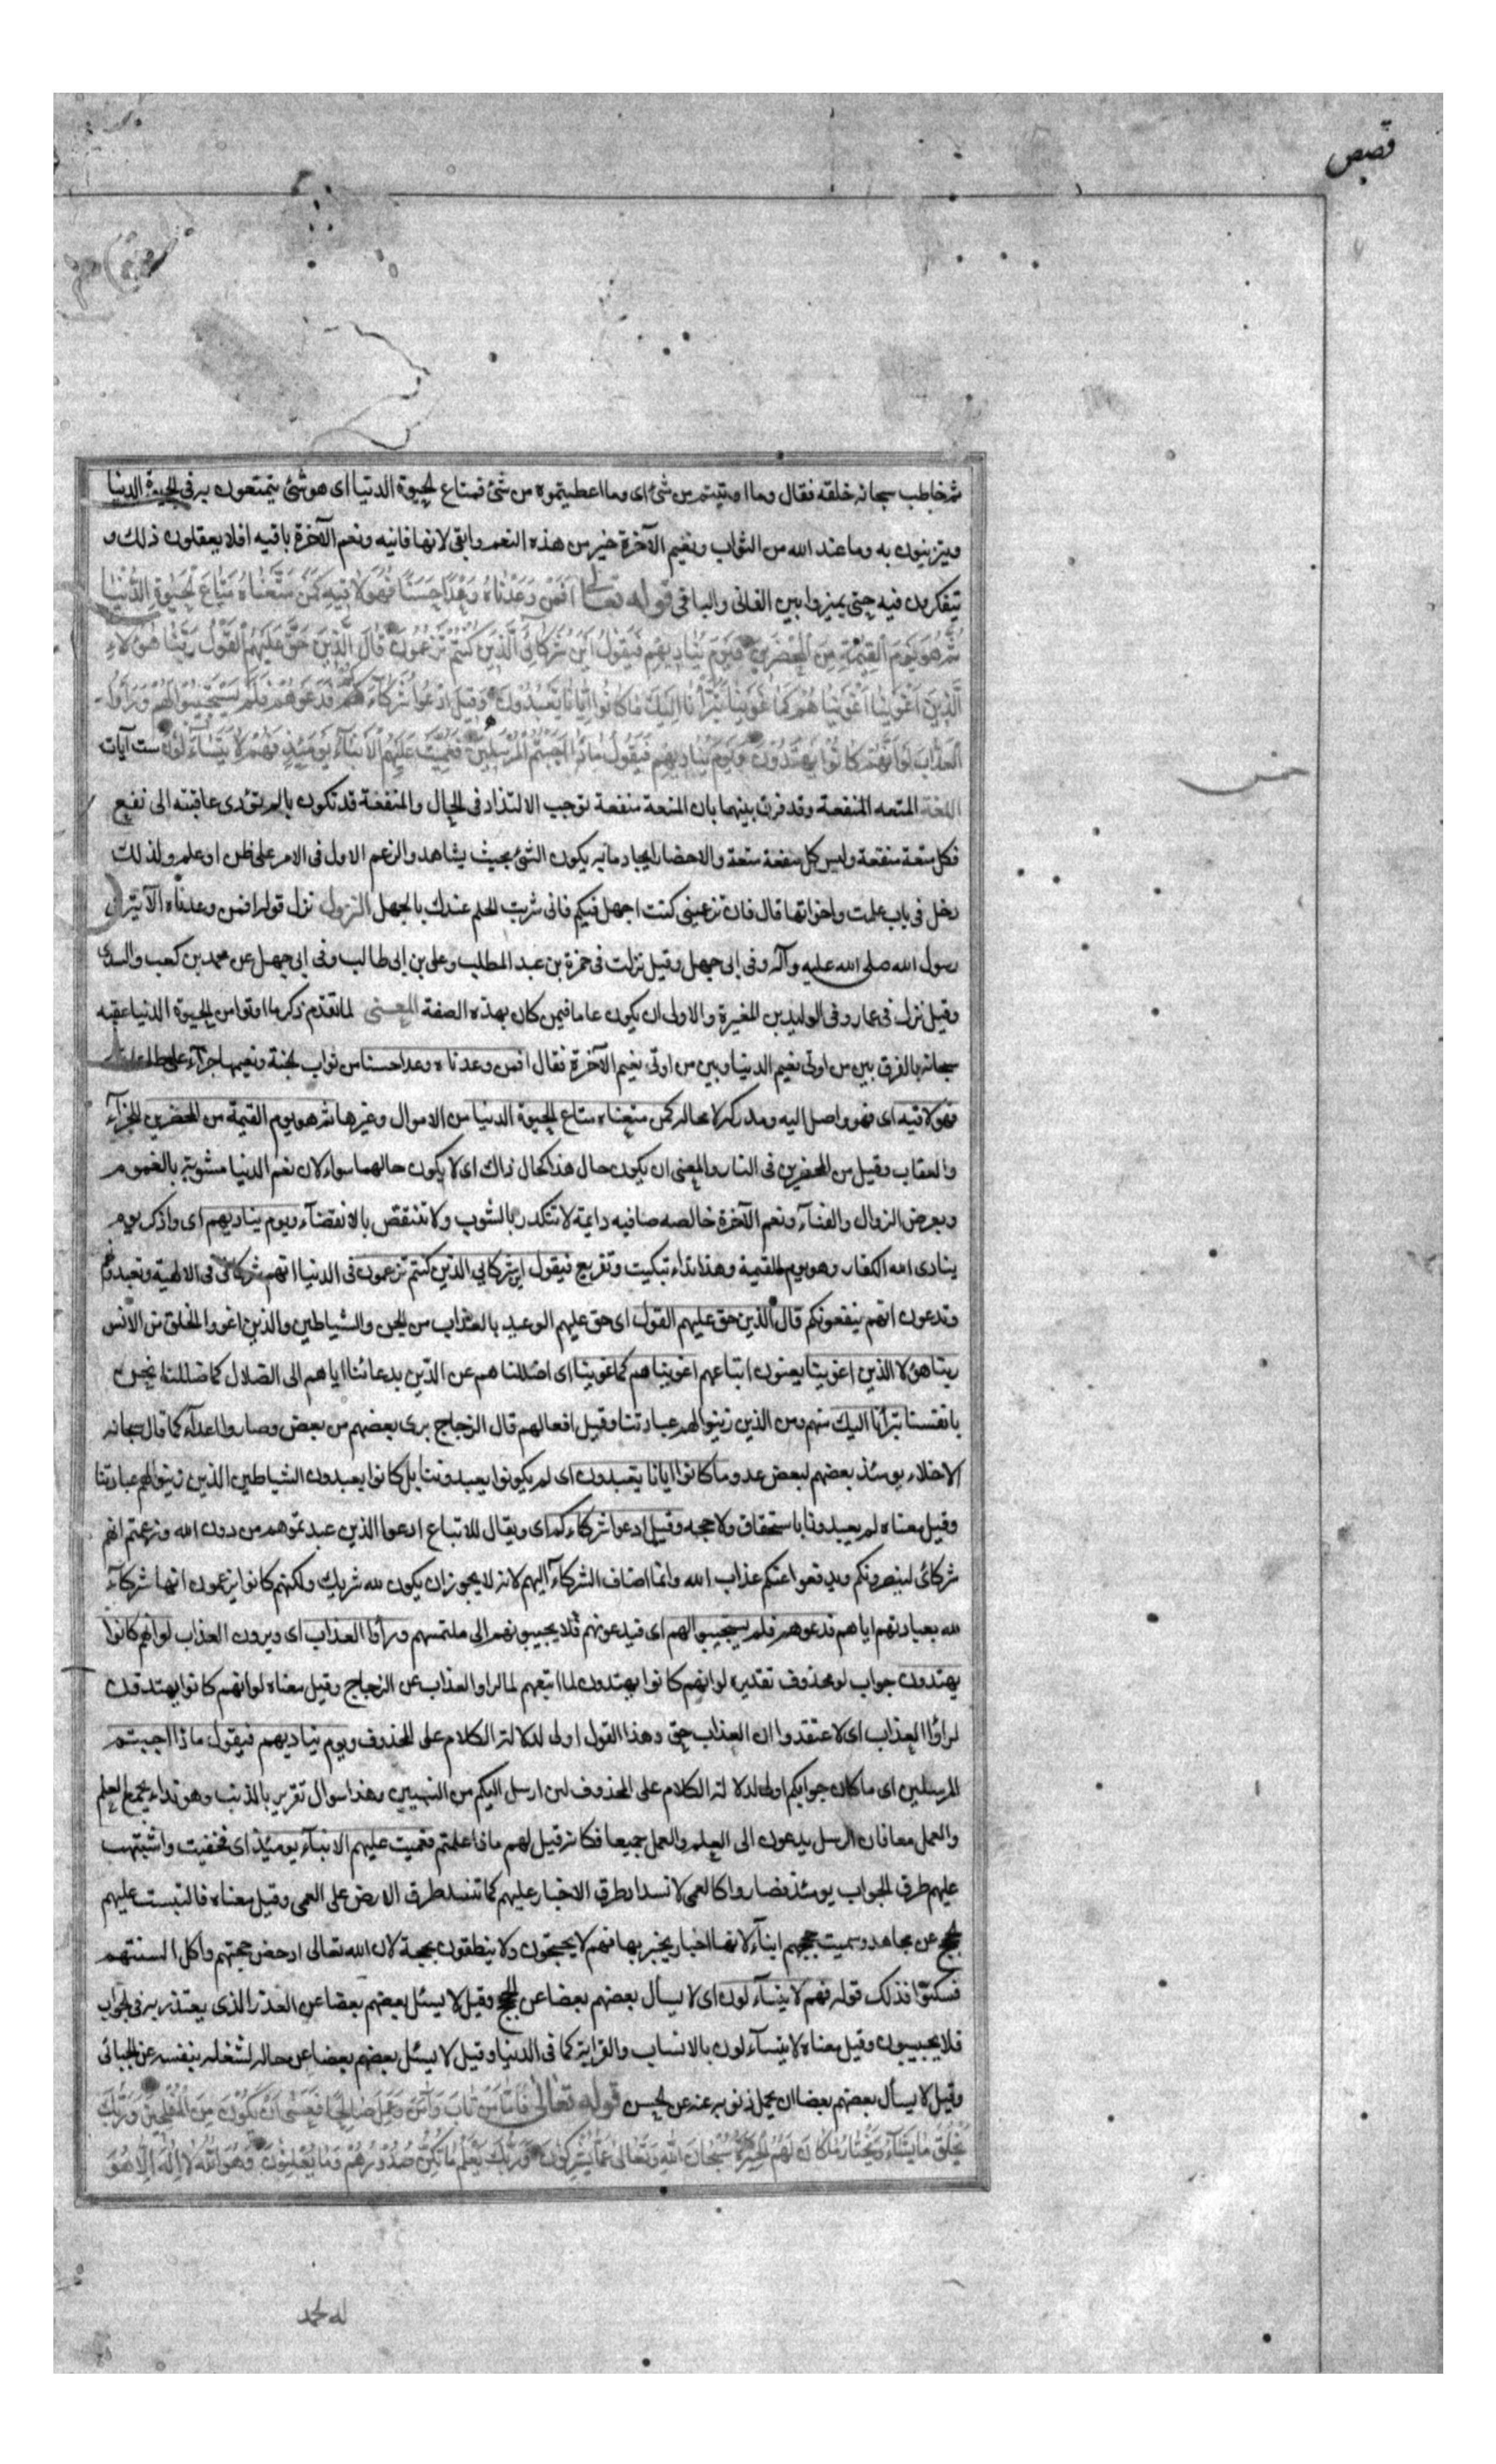 قصص
ثم خاطب سبحانه خلقه فقال وما اوتيتم من شئ اى وما اعطيتموه من شئ فمتاع الحيوة الدنيا اى هو شئ تتمتعون به فى الحيوة الدنيا
وتتزينون به وما عند الله من الثواب ونعيم الآخرة خير من هذه النعم وابقى لانها فانيه ونعم الآخرة باقيه افلا يعقلون ذلك و
تتفكرون فيه حتى يميزوا بين الفانى والباقى قوله تعالى افمن وعدناه وعدا حسنا فهو لاقيه كمن متعناه متاع الحيوة الدنيا
ثم هو يوم القيمة من المحضرين ويوم يناديهم فيقول اين شركائى الذين كنتم تزعمون قال الذين حق عليهم القول ربنا هؤلاء
الذين اغوينا اغويناهم كما غوينا تبرأنا اليك ما كانوا ايانا يعبدون وقيل ادعوا شركاءكم فدعوهم فلم يستجيبوا لهم ورأوا
العذاب لو انهم كانوا يهتدون ويوم يناديهم فيقول ماذا اجبتم المرسلين فعميت عليهم الانبآء يومئذ فهم لا يتسآءلون ست آيات
اللغة المتعه المنفعة وقد فرق بينهما بان المتعة منفعة توجب الالتذاد فى الحال والمنفعة قد تكون بالم تؤدى عاقبته الى نفع
فكل متعة منفعة وليس كل منفعة متعة والاحضار ايجاد ما به يكون الشئ بحيث يشاهد والزعم الاول فى الامر على ظن او علم ولذلك
دخل فى باب علمت واخواتها قال فان تزعمينى كنت اجهل فيكم فانى شريت الحلم عندك بالجهل النزول نزل قوله افمن وعدناه الآية فى
رسول الله صلى الله عليه وآله وفى ابى جهل وقيل نزلت فى حمزة بن عبد المطلب وعلى بن ابى طالب وفى ابى جهل عن محمد بن كعب والسدى
وقيل نزل فى عمار وفى الوليد بن المغيرة والاولى ان يكون عاما فيمن كان بهذه الصفة المعنى لما تقدم ذكر ما اوتوا من الحيوة الدنيا عقبه
سبحانه بالفرق بين من اوتى نعيم الدنيا وبين من اوتى نعيم الآخرة فقال افمن وعدناه وعدا حسنا من ثواب الجنة ونعيمها جزآء على طاعاته
فهو لاقيه اى فهو واصل اليه ومدركه لا محاله كمن متعناه متاع الحيوة الدنيا من الاموال وغيرها ثم هو يوم القيمة من المحضرين للجزآء
والعقاب وقيل من المحضرين فى النار والمعنى ان يكون حال هذا كحال ذاك اى لا يكون حالهما سواء لان نعم الدنيا مشوبة بالغموم
وبعرض الزوال والفنآء ونعم الآخرة خالصه صافيه دايمة لا تتكدر بالشوب ولا تنتقص بالانقضآء ويوم يناديهم اى واذكر يوم
ينادى الله الكفار وهو يوم القيمة وهذا نداء تبكيت وتقريع فيقول اين شركائى الذين كنتم تزعمون فى الدنيا انهم شركائى فى الالهية وتعبدونهم
وتدعون انهم ينفعونكم قال الذين حق عليهم القول اى حق عليهم الوعيد بالعذاب من الجن والشياطين والذين اغووا الخلق من الانس
ربنا هؤلا الذين اغوينا يعنون اتباعهم اغويناهم كما غوينا اى اضللناهم عن الدين بدعائنا اياهم الى الضلال كما ضللنا نحن
بانفسنا تبرأنا اليك منهم ومن الذين زينوا لهم عبادتنا وقيل افعالهم قال الزجاج برى بعضهم من بعض وصاروا اعدآء كما قال سبحانه
الاخلاء يومئذ بعضهم لبعض عدو وما كانوا ايانا يعبدون اى لم يكونوا يعبدوننا بل كانوا يعبدون الشياطين الذين زينوا لهم عبادتنا
وقيل معناه لم يعبدونا باستحقاق ولا حجه وقيل ادعوا شركاءكم اى ويقال للاتباع ادعوا الذين عبدتموهم من دون الله وزعمتم انهم
شركائى لينصرونكم ويدفعوا عنكم عذاب الله وانما اضاف الشركآء اليهم لانه لا يجوز ان يكون لله شريك ولكنهم كانوا يزعمون انها شركآء
لله بعبادتهم اياهم فدعوهم فلم يستجيبوا لهم اى فيدعونهم فلا يجيبونهم الى ملتمسهم ورأوا العذاب اى ويرون العذاب لو انهم كانوا
يهتدون جواب لو محذوف تقديره لو انهم كانوا يهتدون لما اتبعهم لما راوا العذاب عن الزجاج وقيل معناه لو انهم كانوا يهتدون
لرأوا العذاب اى لاعتقدوا ان العذاب حق وهذا القول اولى لدلالة الكلام على المحذوف ويوم يناديهم فيقول ماذا اجبتم
المرسلين اى ما كان جوابكم اولى لدلالة الكلام على المحذوف لمن ارسل اليكم من النبيين وهذا سوال تقرير بالذنب وهو نداء يجمع العلم
والعمل معا فان الرسل يدعون الى العلم والعمل جميعا فكانه قيل لهم ماذا علمتم فعميت عليهم الانبآء يومئذ اى فخفيت واشتبهت
عليهم طرق الجواب يومئذ فصاروا كالعمى لانسداد طرق الاخبار عليهم كما تنسد طرق الارض على العمى وقيل معناه فالتبست عليهم
الحجج عن مجاهد وسميت حججهم انبآء لانها اخبار يخبر بها فهم لا يحتجون ولا ينطقون بحجة لان الله تعالى ادحض حجتهم واكل السنتهم
فسكتوا فذلك قوله فهم لا يتسآءلون اى لا يسأل بعضهم بعضا عن الحجج وقيل لا يسئل بعضهم بعضا عن العذر الذى يعتذر به فى الجواب
فلا يجيبون وقيل معناه لا يتسآءلون بالانساب والقرابة كما فى الدنيا وقيل لا يسئل بعضهم بعضا عن حاله لشغله بنفسه عن الجبائى
وقيل لا يسأل بعضهم بعضا ان يحمل ذنوبه عنه عن الحسن قوله تعالى فاما من تاب وآمن وعمل صالحا فعسى ان يكون من المفلحين وربك
يخلق ما يشآء ويختار ما كان لهم الخيرة سبحان الله وتعالى عما يشركون وربك يعلم ما تكن صدورهم وما يعلنون وهو الله لا اله الا هو
له الحمد